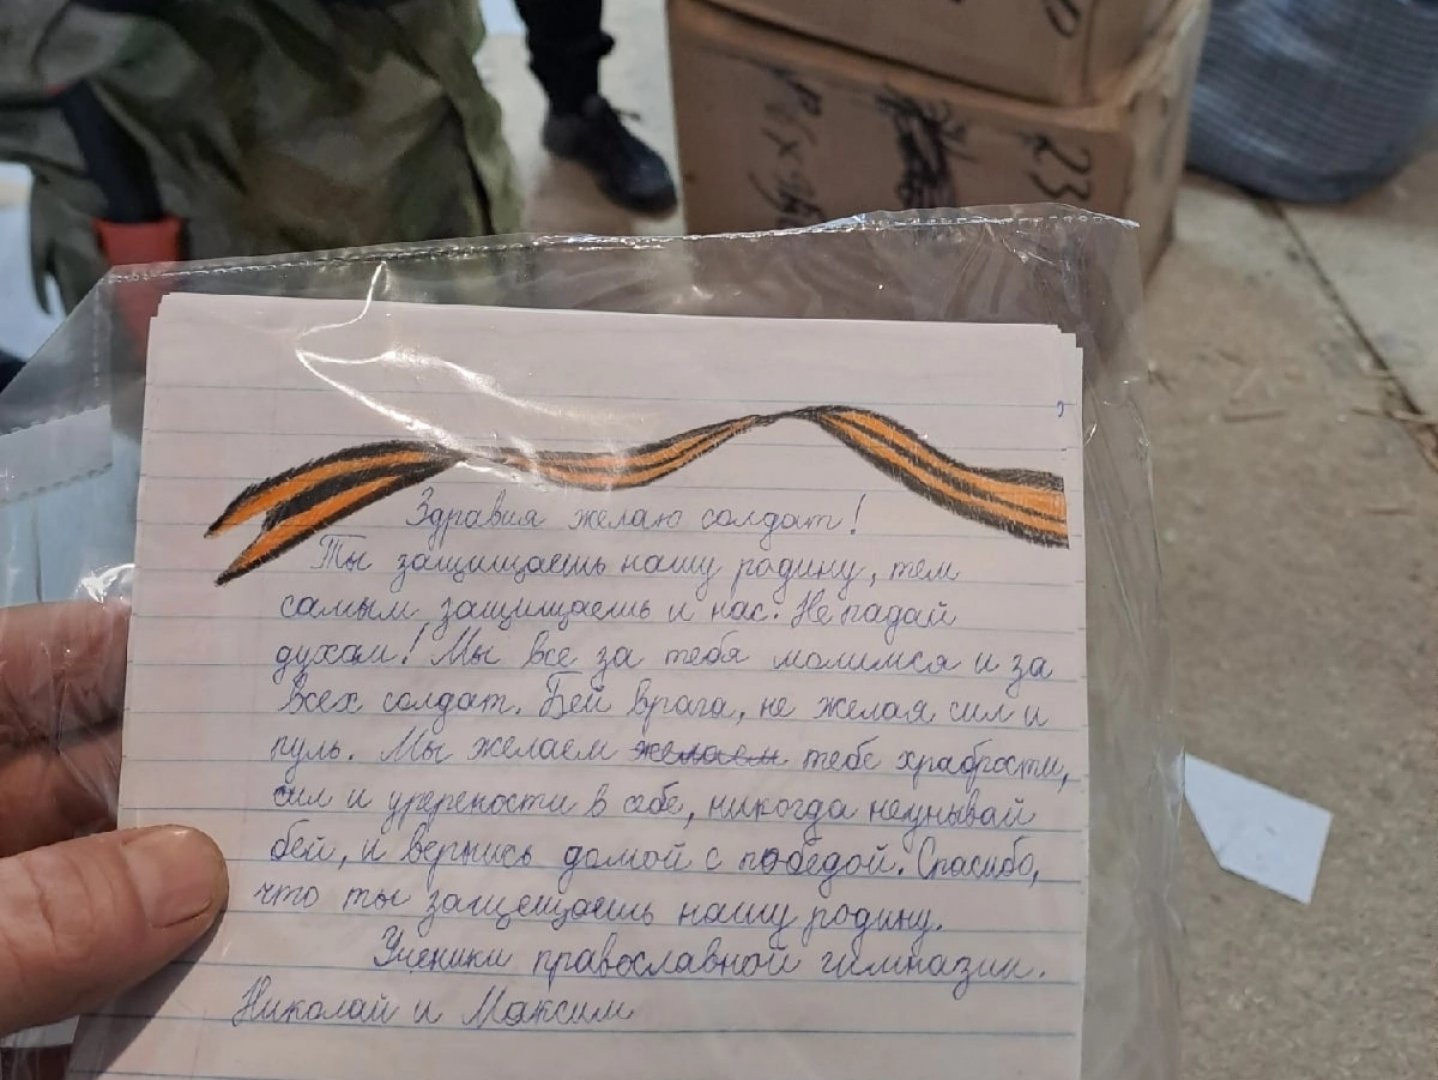 23
Здравия желаю солдат!
Ты защищаешь нашу родину, тем
самым защищаешь и нас. Не падай
духом! Мы все за тебя молимся и за
всех солдат. Бей врага, не желая сил и
пуль. Мы желаем желаем тебе храбрости,
сил и уверености в себе, никогда неунывай
бей, и вернись домой с победой. Спасибо,
что ты защещаешь нашу родину.
Ученики православной гимназии.
Николай и Максим